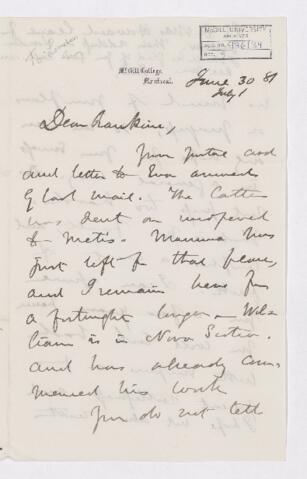 McGILL UNIVERSITY
ARCHIVES
McGill College,
Montreal.
June 30 81
July 1
Dear Rankine,
Your postal card
and letter to Eva arrived
by last mail. The latter
was sent on unopened
to Metis. Mamma has
just left for that place,
and I remain here for
a fortnight longer. Wil-
liam is in Nova Scotia
and has already com-
menced his work
You do not tell